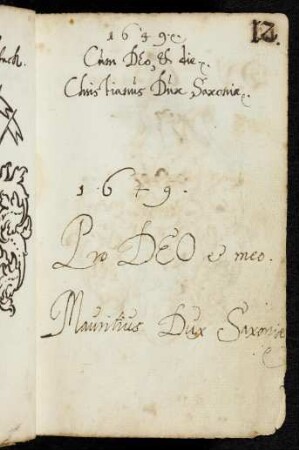 12.
bach.
1649.
Cum DEo, et die.
Christianus Dux Saxoniæ.
1.6.4.9.
Pro DEO e meo.
Mauritius Dux Saxoniæ